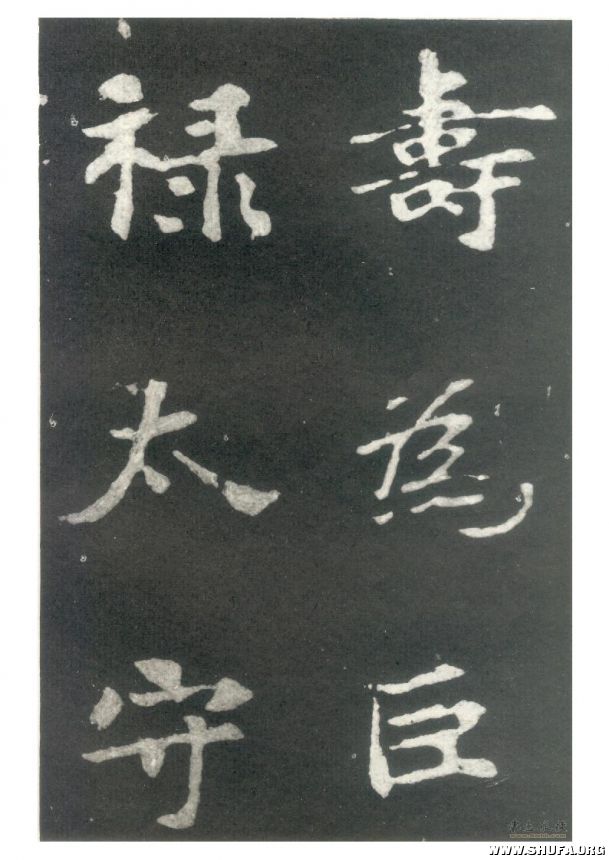 壽為巨
祿太守
WWW.SHUFA.ORG